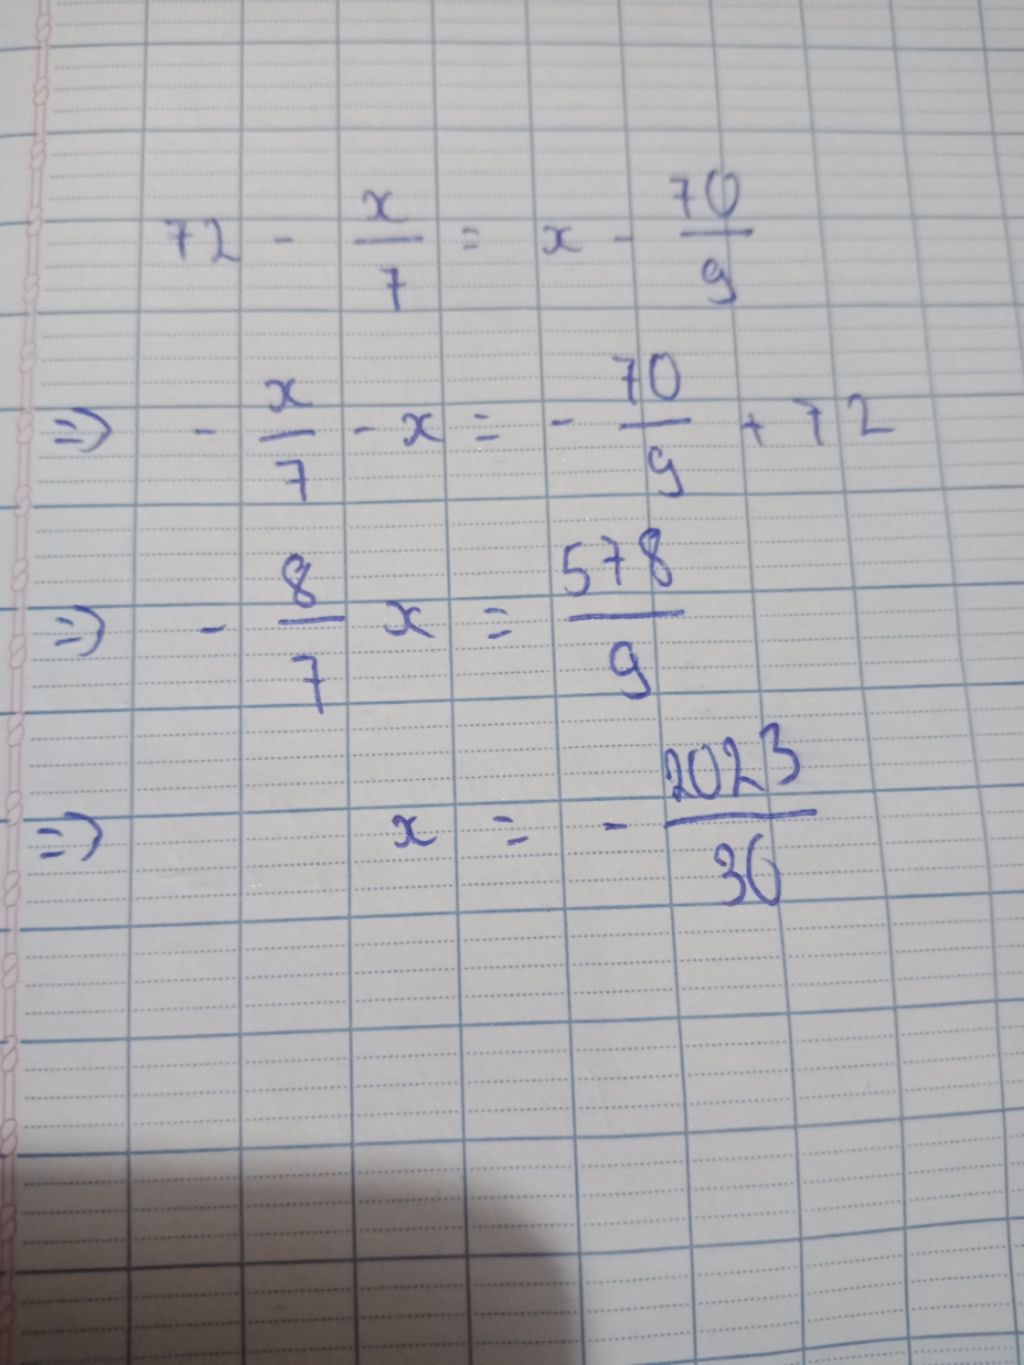 72 - x/7 = x - 70/9
=> - x/7 - x = - 70/9 + 72
=> - 8/7 x = 578/9
=> x = - 2023/36